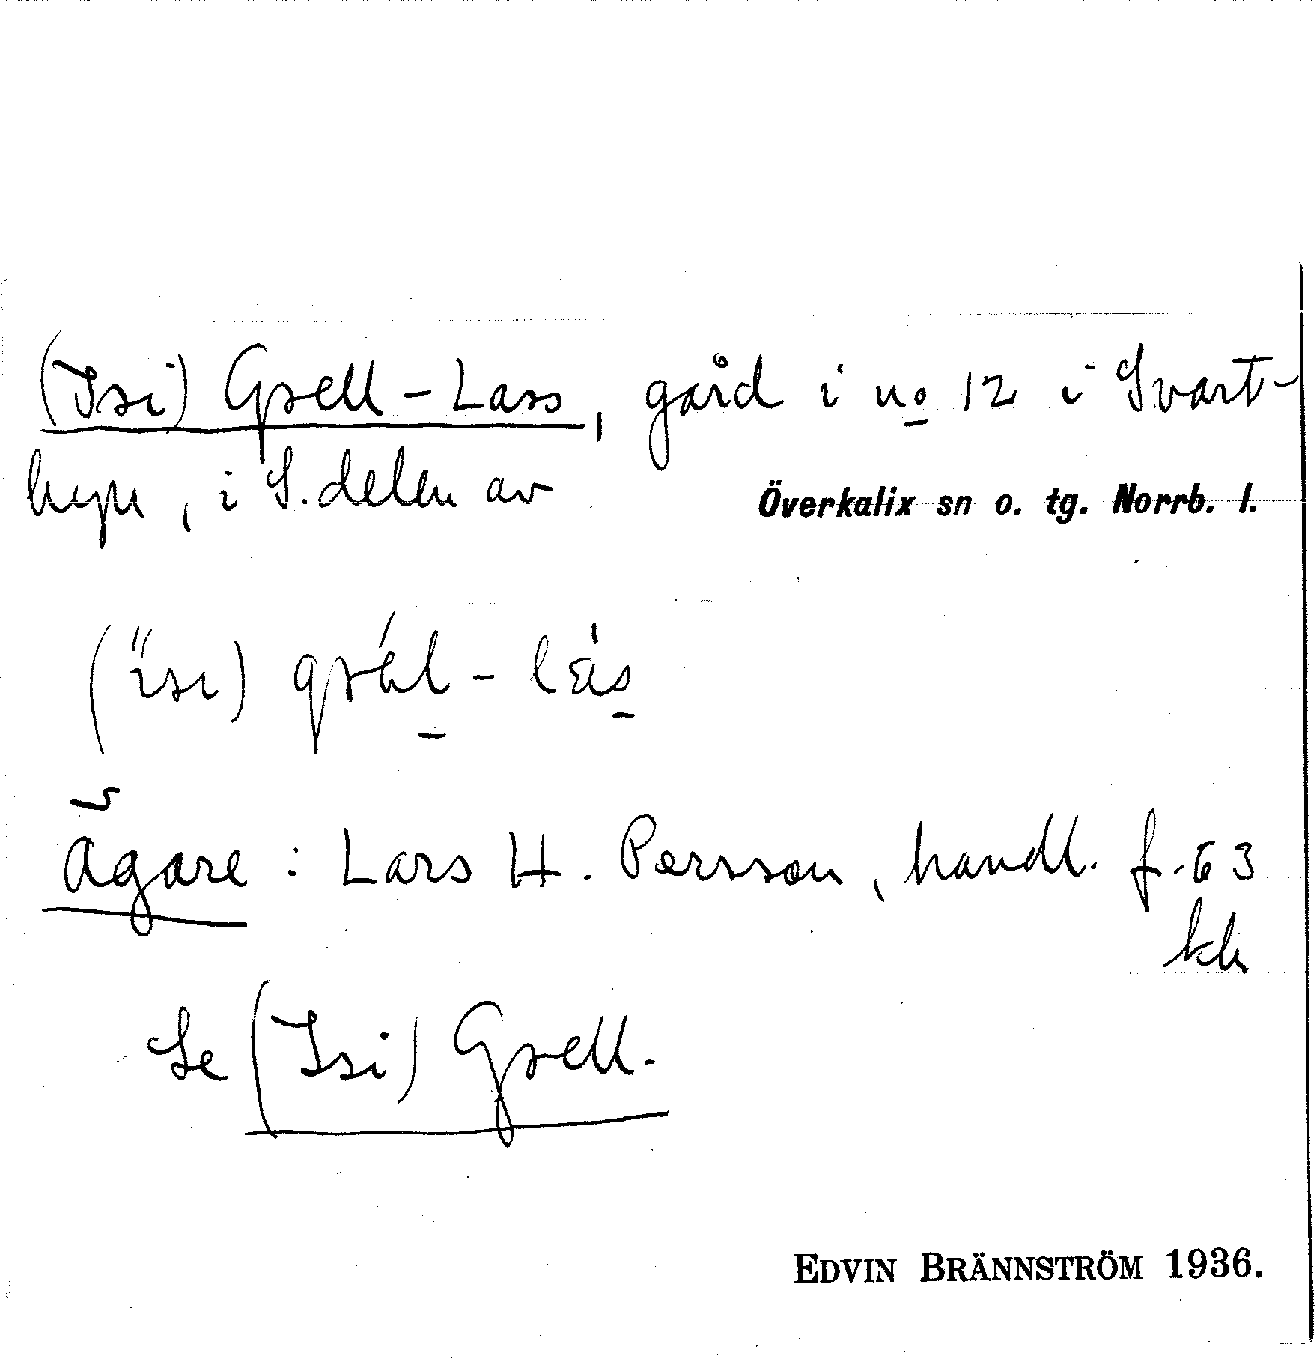 (Isi) Grell-Lass, gård i no 12 i Svart-
byn, i S. delen av Överkalix sn o. tg. Norrb. l.
Ägare: Lars H. Persson, handl. f. 63
kh
Se (Isi) Grell.
EDVIN BRÄNNSTRÖM 1936.